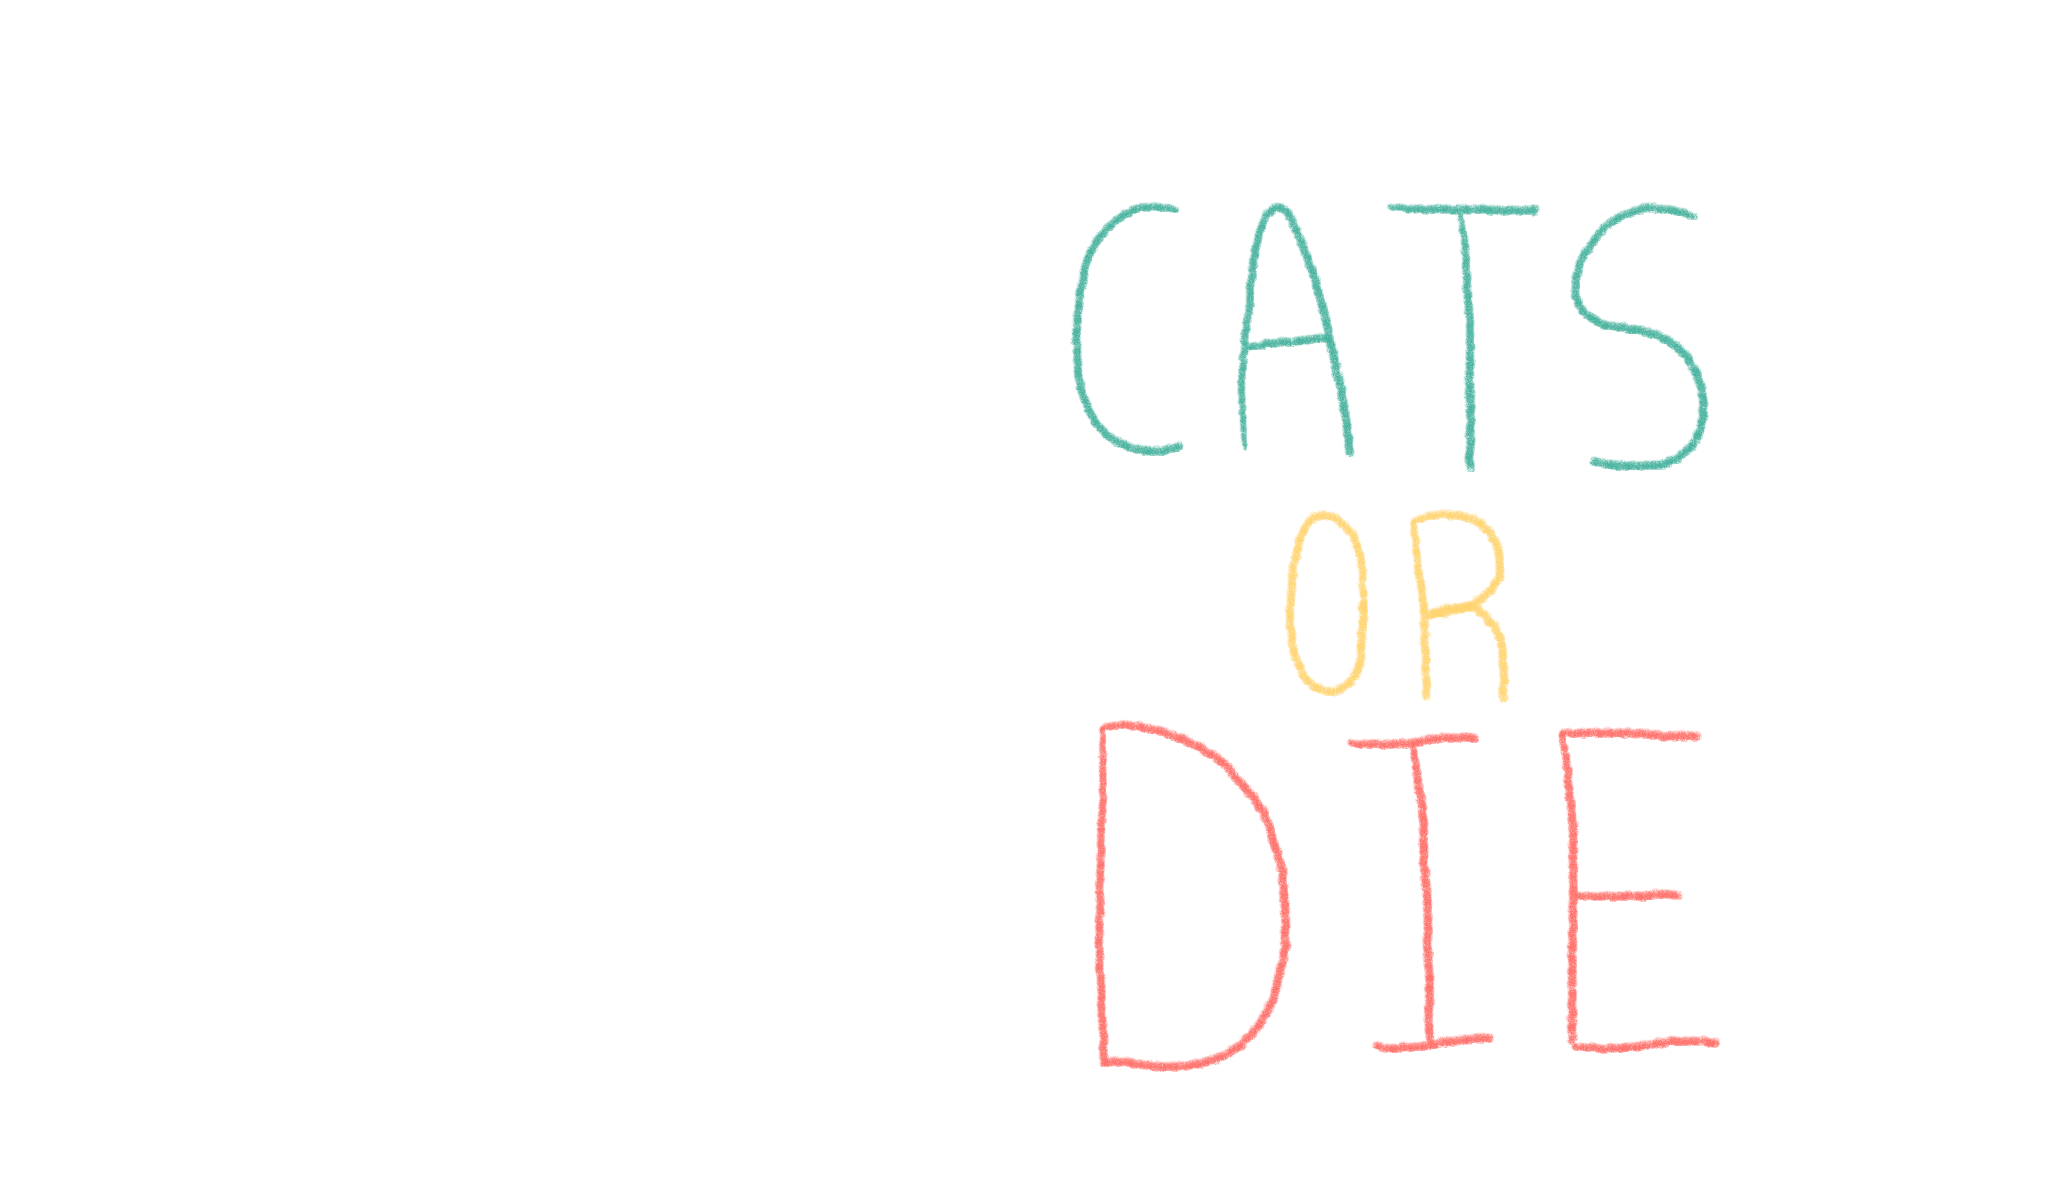 CATS
OR
DIE